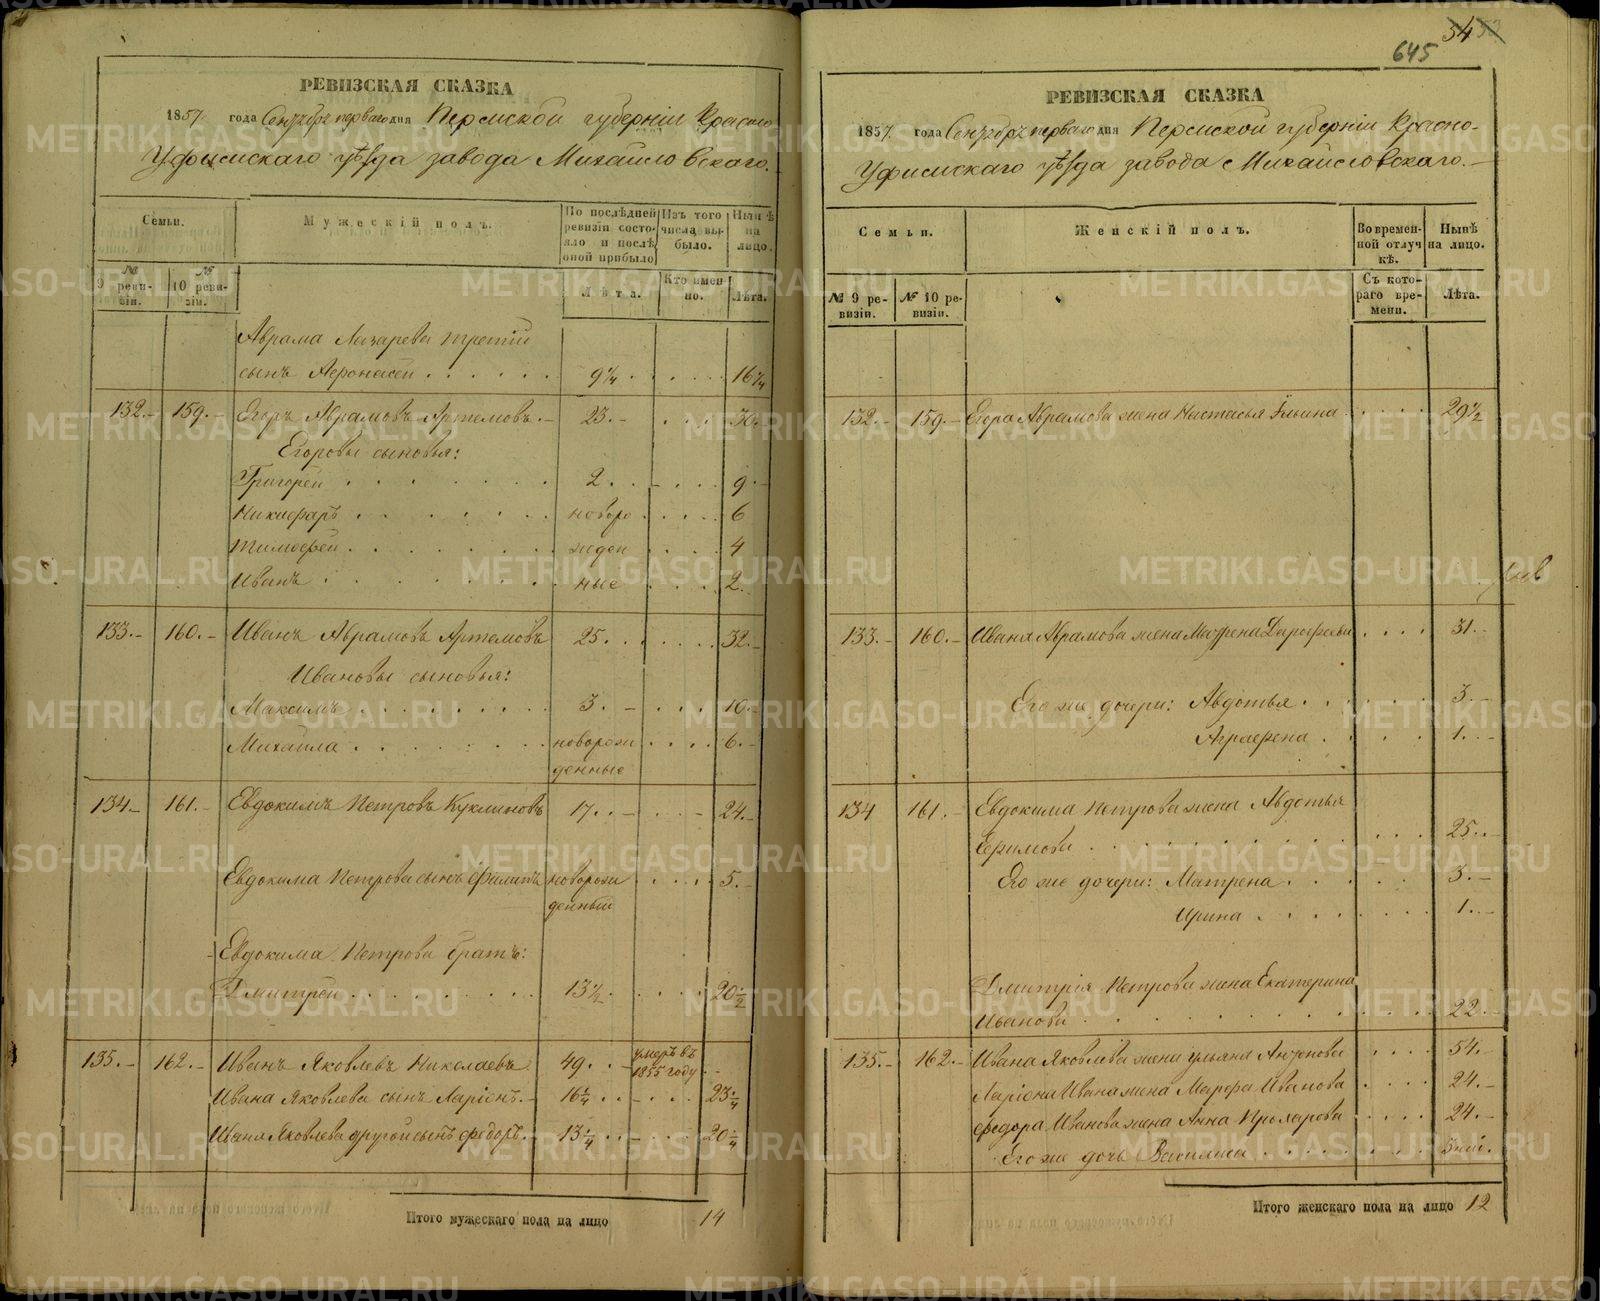 РЕВИЗСКАЯ СКАЗКА
1857 года Сентября перваго дня Пермской губерніи Красно
Уфимскаго уѣзда завода Михайловскаго.
Семьи.
Мужескій полъ.
По послѣдней ревизіи состояло и послѣ оной прибыло
Изъ того числа выбыло.
Нынѣ на лицо.
№ 9 ревизіи.
№ 10 ревизіи.
Лѣта.
Кто именно.
Лѣта.
Аврама Лазарева третій
сынъ Афонасей 9 1/4 16 1/4
132. 159. Егоръ Аврамовъ Артемовъ 23. 30.
Егоровы сыновья:
Григорей 2 9
Никифаръ новоро 6
Тимофей жден 4
Иванъ ные 2
133. 160. Иванъ Аврамовъ Артемовъ 25. 32.
Ивановы сыновья:
Максимъ 3. 10.
Михайла новорож 6.
денные
134. 161. Евдокимъ Петровъ Куклиновъ 17. 24.
Евдокима Петрова сынъ Филипъ новорож 5.
денный
Евдокима Петрова братъ:
Дмитрей 13 1/2 20 1/2
135. 162. Иванъ Яковлевъ Николаевъ 49. умеръ въ 1855 году
Ивана Яковлева сынъ Ларіонъ. 16 1/4 23 1/4
Ивана Яковлева другой сынъ Федоръ. 13 1/4 20 1/4
Итого мужескаго пола на лицо 14
54
645
РЕВИЗСКАЯ СКАЗКА
1857 года Сентября перваго дня Пермской губерніи Красно-
Уфимскаго уѣзда завода Михайловскаго.
Семьи.
Женскій полъ.
Во временной отлучкѣ.
Нынѣ на лицо.
№ 9 ревизіи.
№ 10 ревизіи.
Съ котораго времени.
Лѣта.
132. 159. Егора Аврамова жена Настасья Ильина 29 1/2
133. 160. Ивана Аврамова жена Матрена Дарофеева 31.
Его же дочери: Авдотья 3.
Аграфена 1.
134 161. Евдокима Петрова жена Авдотья
Ефимова 25.
Его же дочери: Матрена 3.
Ирина 1.
Дмитрія Петрова жена Екатерина
Иванова 22.
135. 162. Ивана Яковлева жена Ульяна 54.
Ларіона Иванова жена Марфа Иванова 24.
Федора Иванова жена Анна 24.
Его же дочь Василиса
Итого женскаго пола на лицо 12
METRIKI.GASO-URAL.RU